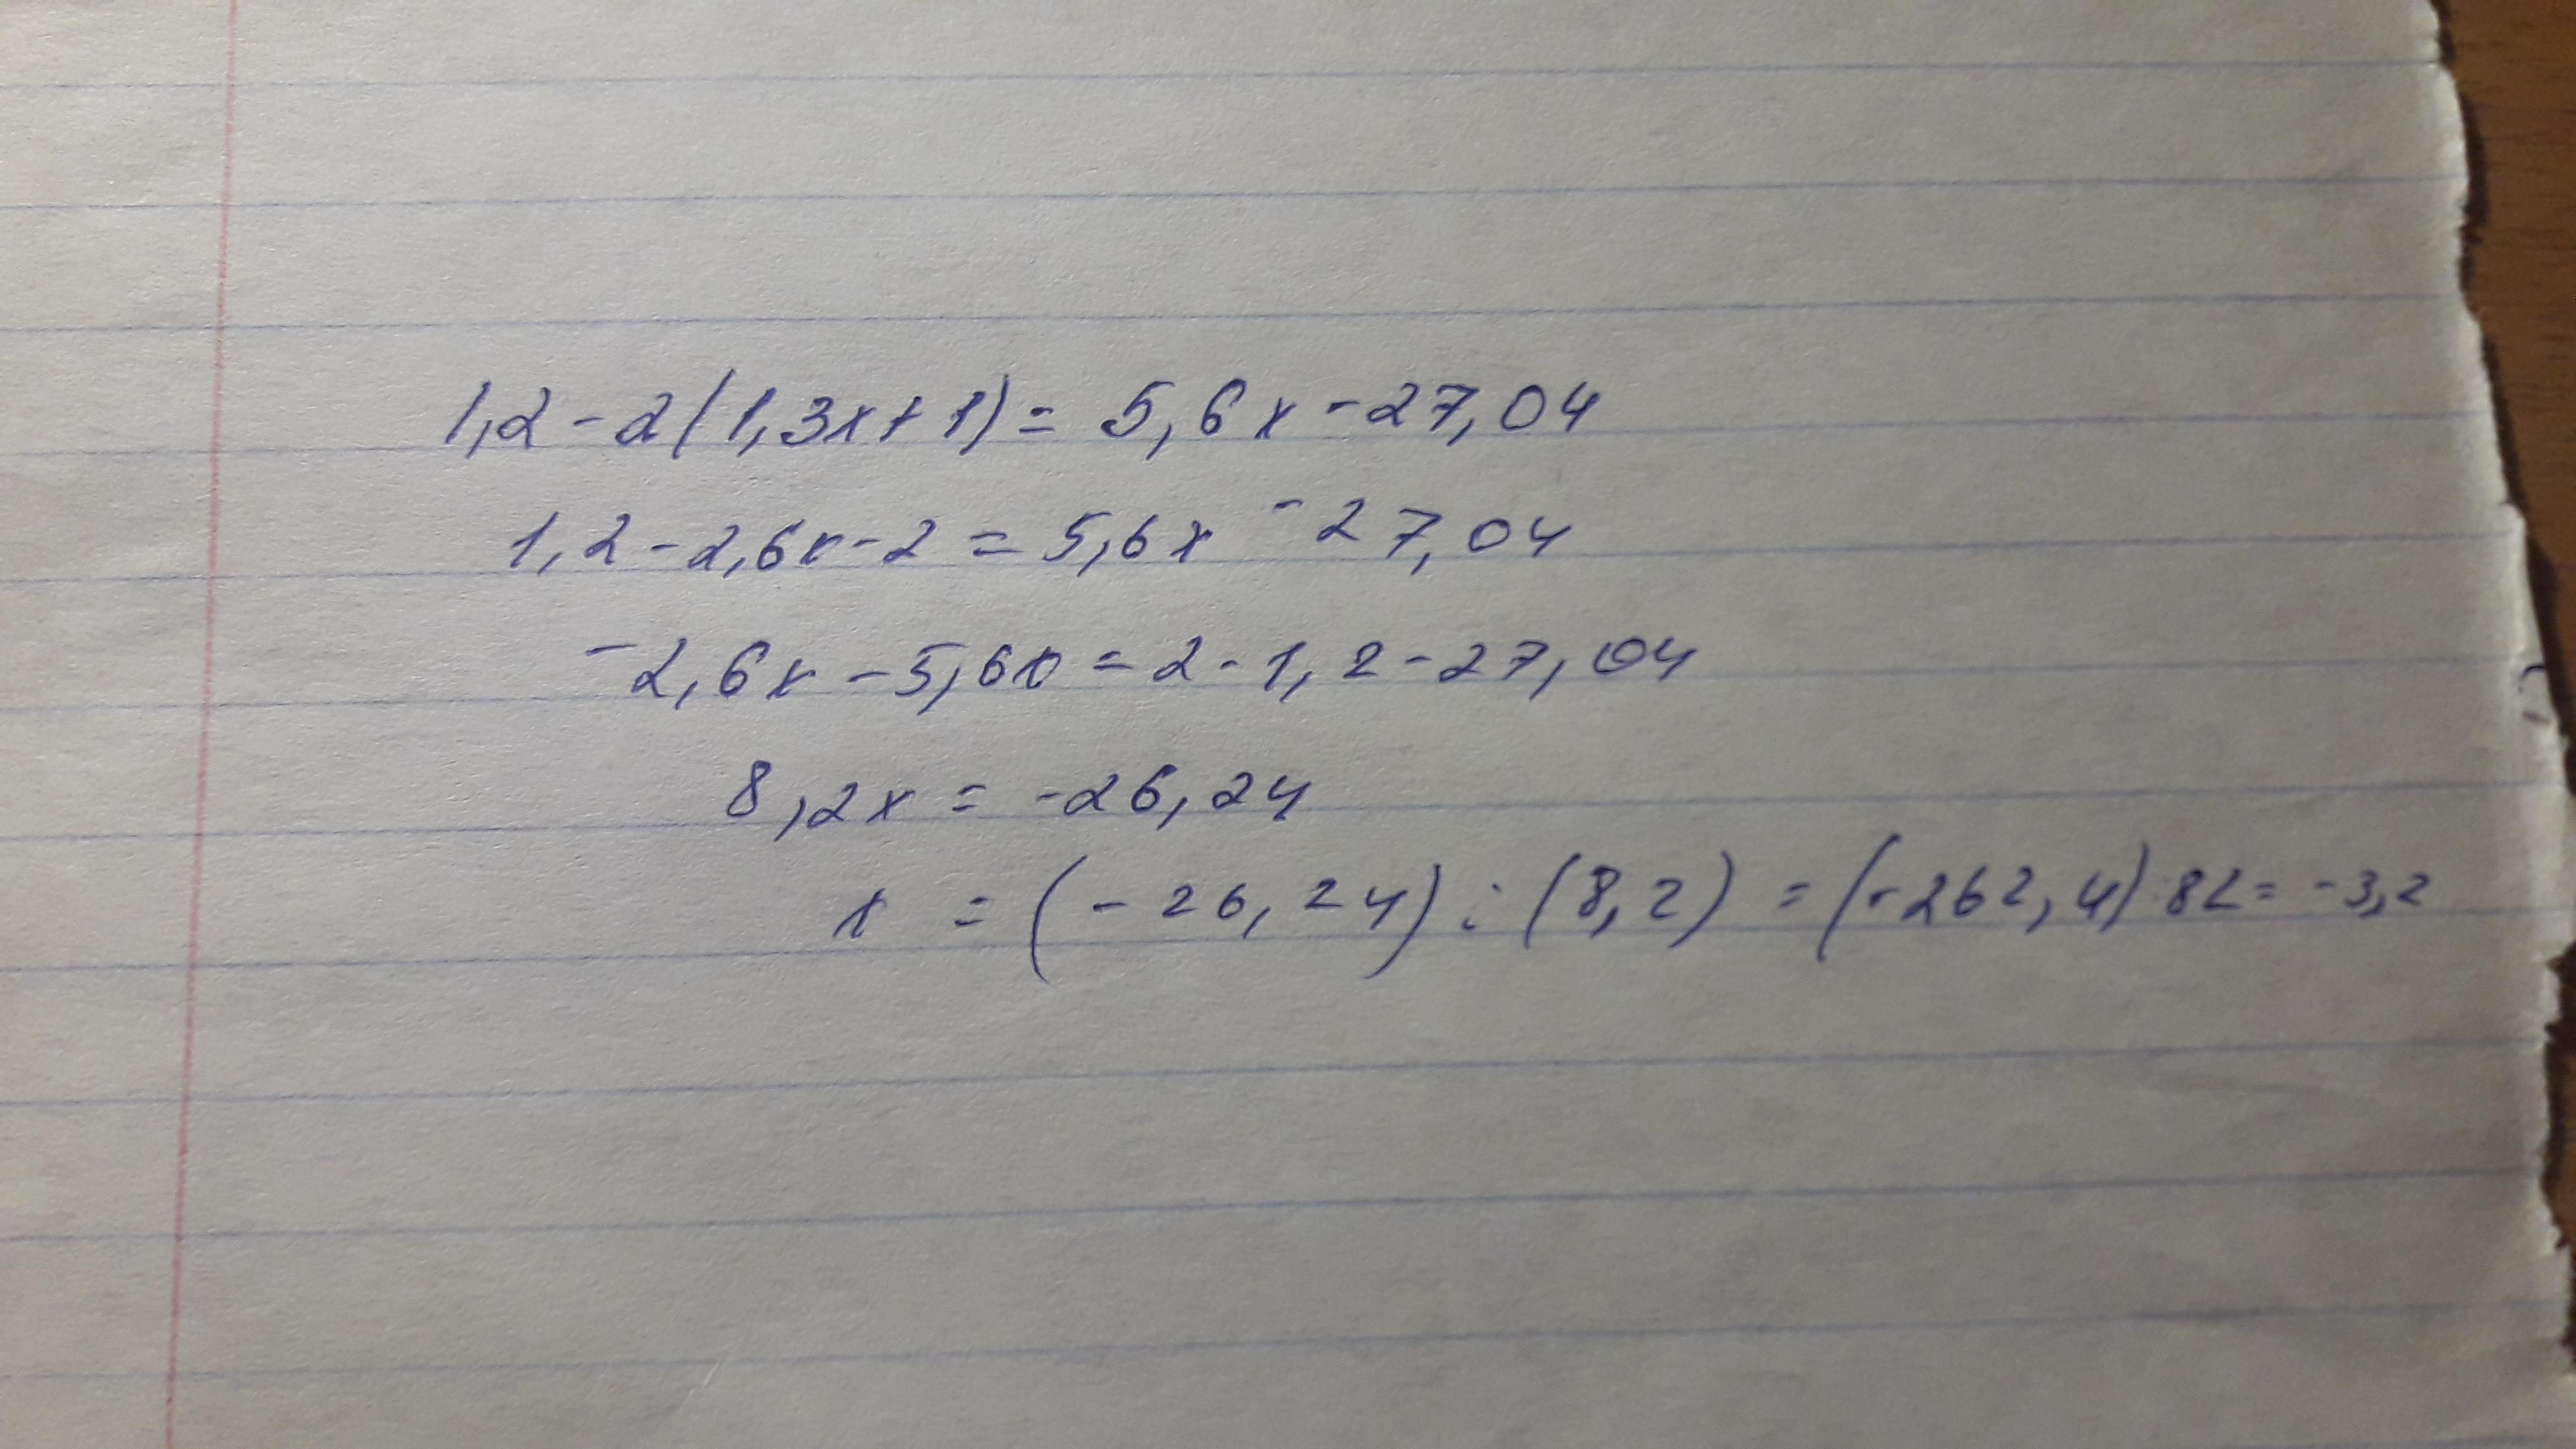 1,2-2(1,3x+1)=5,6x-27,04
1,2-2,6x-2=5,6x-27,04
-2,6x-5,6x=2-1,2-27,04
8,2x=-26,24
x=(-26,24):(8,2)=(-262,4):82=-3,2